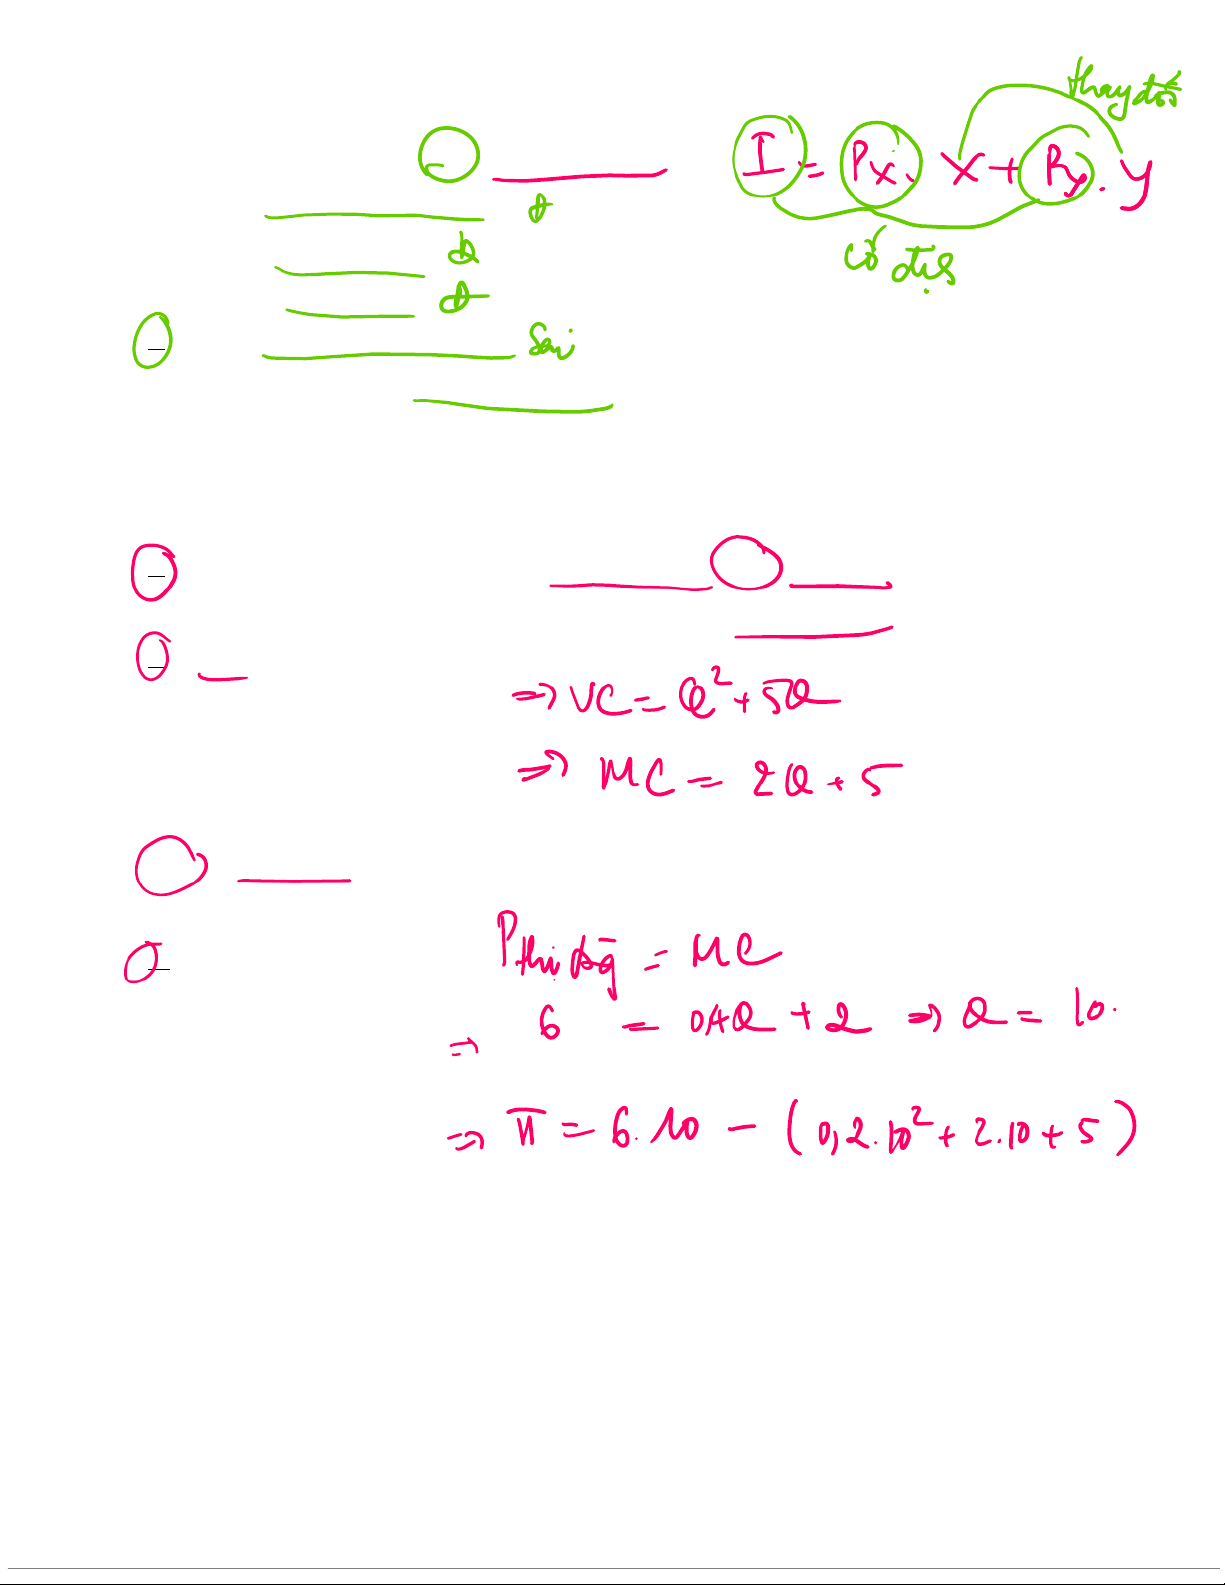 thay đổi
I = Px. X + Py. y
cố định
đ
đ
đ
Sai
⇒ VC = Q² + 5Q
⇒ MC = 2Q + 5
Pthị trường = MC
⇒ 6 = 0,4Q + 2 ⇒ Q = 10.
⇒ π = 6.10 − (0,2.10² + 2.10 + 5)